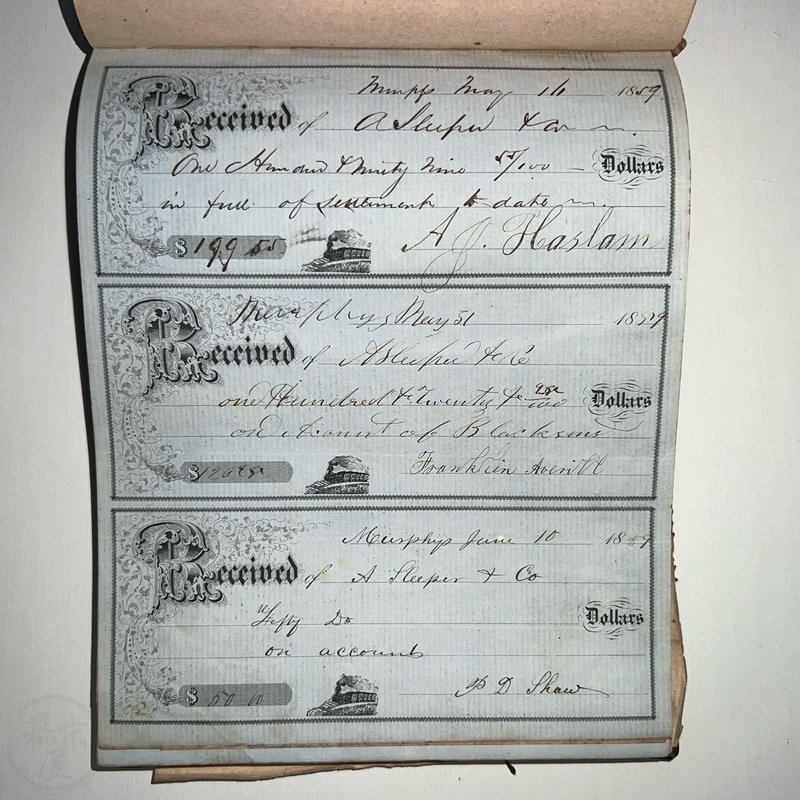 Murphys May 16 1859
Received of A Sleeper & Co
One Hundred & Ninty Nine 55/100 Dollars
in full of settlement to date
$ 199 55 A. J. Haslam
Murphys May 31 1859
Received of A Sleeper & Co
one Hundred & Twenty Dollars
on Acount of Blacksons
$ 120 Franklin Averill
Murphys June 10 1859
Received of A Sleeper & Co
Fifty Do Dollars
on account
$ 50 00 P D Shaw